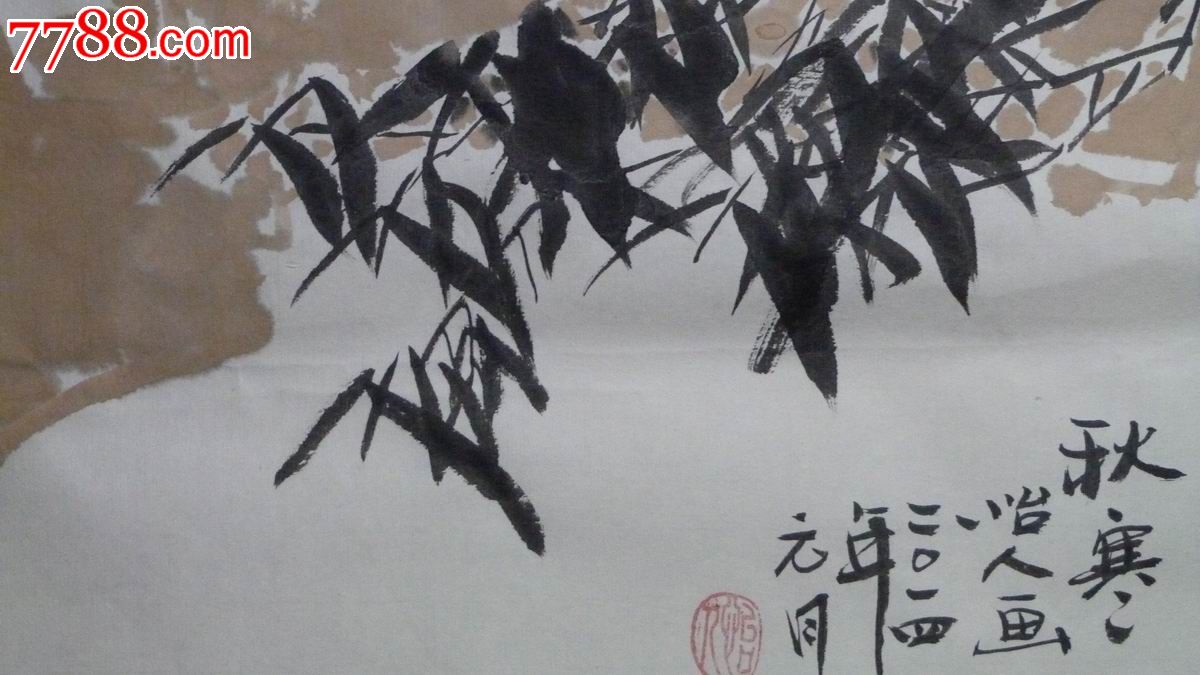 7788.com
秋寒
怡人画
二〇一四
年
元月
怡人